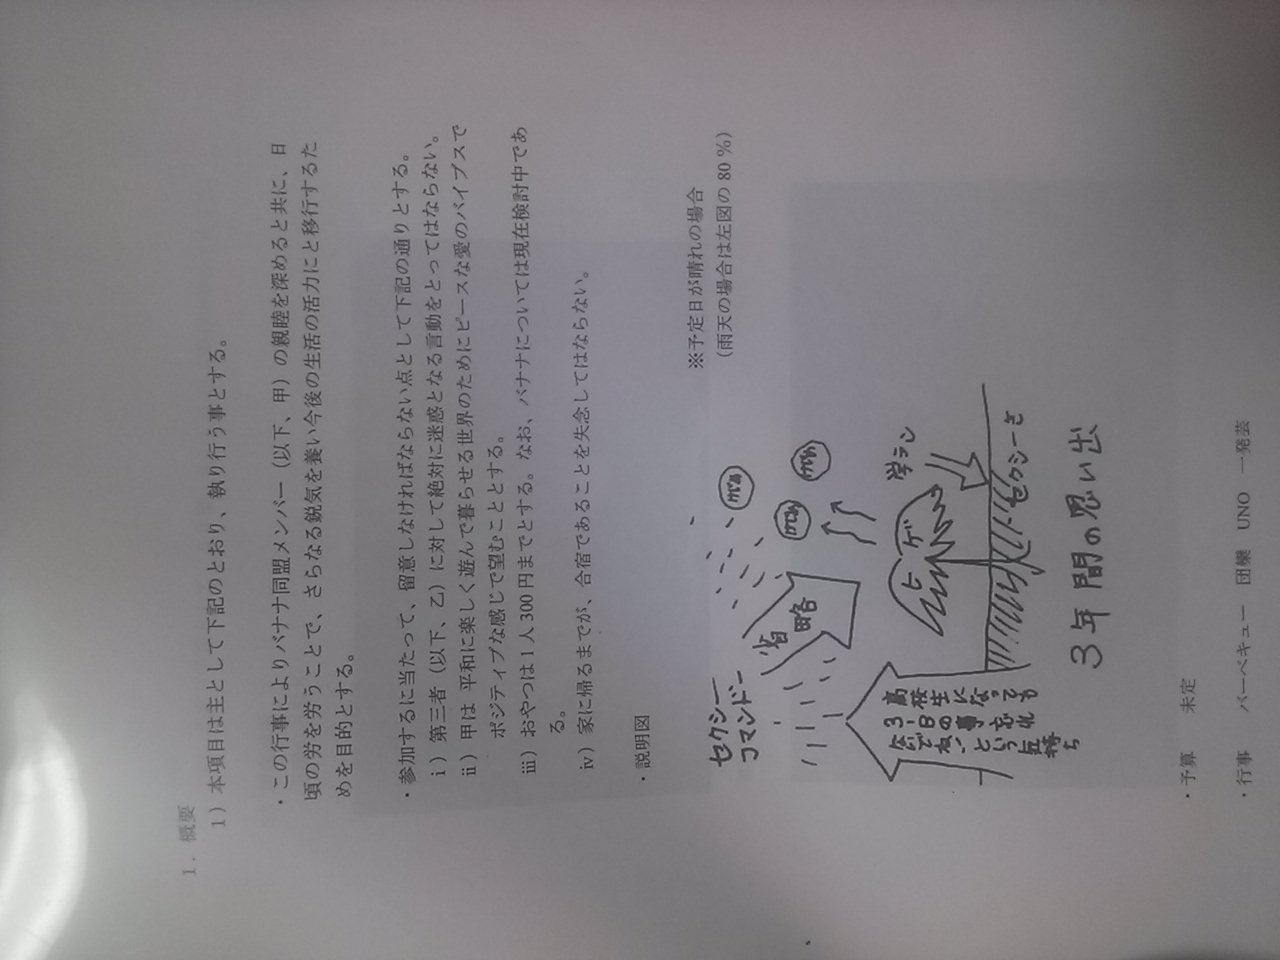 1. 概要
1）本項目は主として下記のとおり、執り行う事とする。
・この行事によりバナナ同盟メンバー（以下、甲）の親睦を深めると共に、日
頃の労を労うことで、さらなる鋭気を養い今後の生活の活力にと移行するた
めを目的とする。
・参加するに当たって、留意しなければならない点として下記の通りとする。
ⅰ）第三者（以下、乙）に対して絶対に迷惑となる言動をとってはならない。
ⅱ）甲は 平和に楽しく遊んで暮らせる世界のためにピースな愛のバイブスで
ポジティブな感じで望むこととする。
ⅲ）おやつは1人300円までとする。なお、バナナについては現在検討中であ
る。
ⅳ）家に帰るまでが、合宿であることを失念してはならない。
・説明図
※予定日が晴れの場合
（雨天の場合は左図の80％）
セクシー
コマンドー
省略
高校生になっても
3・1・日の事
という気持ち
ヒゲ
学ラン
セクシーさ
3年間の思い出
・予算 未定
・行事 バーベキュー 団欒 UNO 一発芸